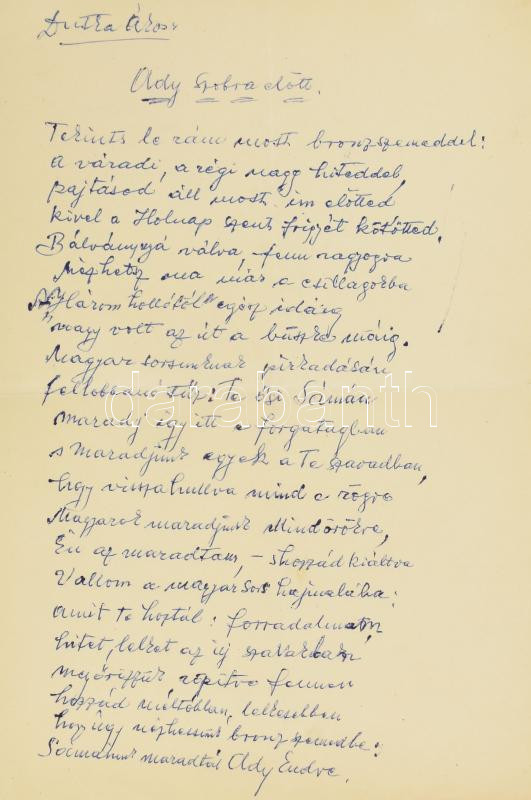 Dutka Ákos
Ady szobra előtt.
Tekints le rám most bronzszemeddel:
a váradi, a régi nagy hiteddel,
pajtásod áll most ím előtted
kivel a Holnap szent frigyét kötötted,
Bálvánnyá válva, fenn ragyogva
Nézhetsz ma már a csillagokba
A "Három hollótól" egész idáig
nagy volt az út a büszke máig.
Magyar sorsunknak pirkadásán
fellobbanó tűz: Te ősi Sámán
maradj így itt a forgatagban
s maradjunk egyek a Te szavadban,
hogy visszahullva mind a rögre
Magyarok maradjunk Mindörökre,
Én az maradtam, – s hozzád kiáltva
Vallom a magyar sors hajnalába:
amit te hoztál: forradalmatn
hitet, lelket az új szavakban
megőrizzük repítve fennen
hozzád méltóbban, lelkesebben
hogy úgy nézhessünk bronz szemedbe:
Sámánunk maradtál Ady Endre.
darabanth